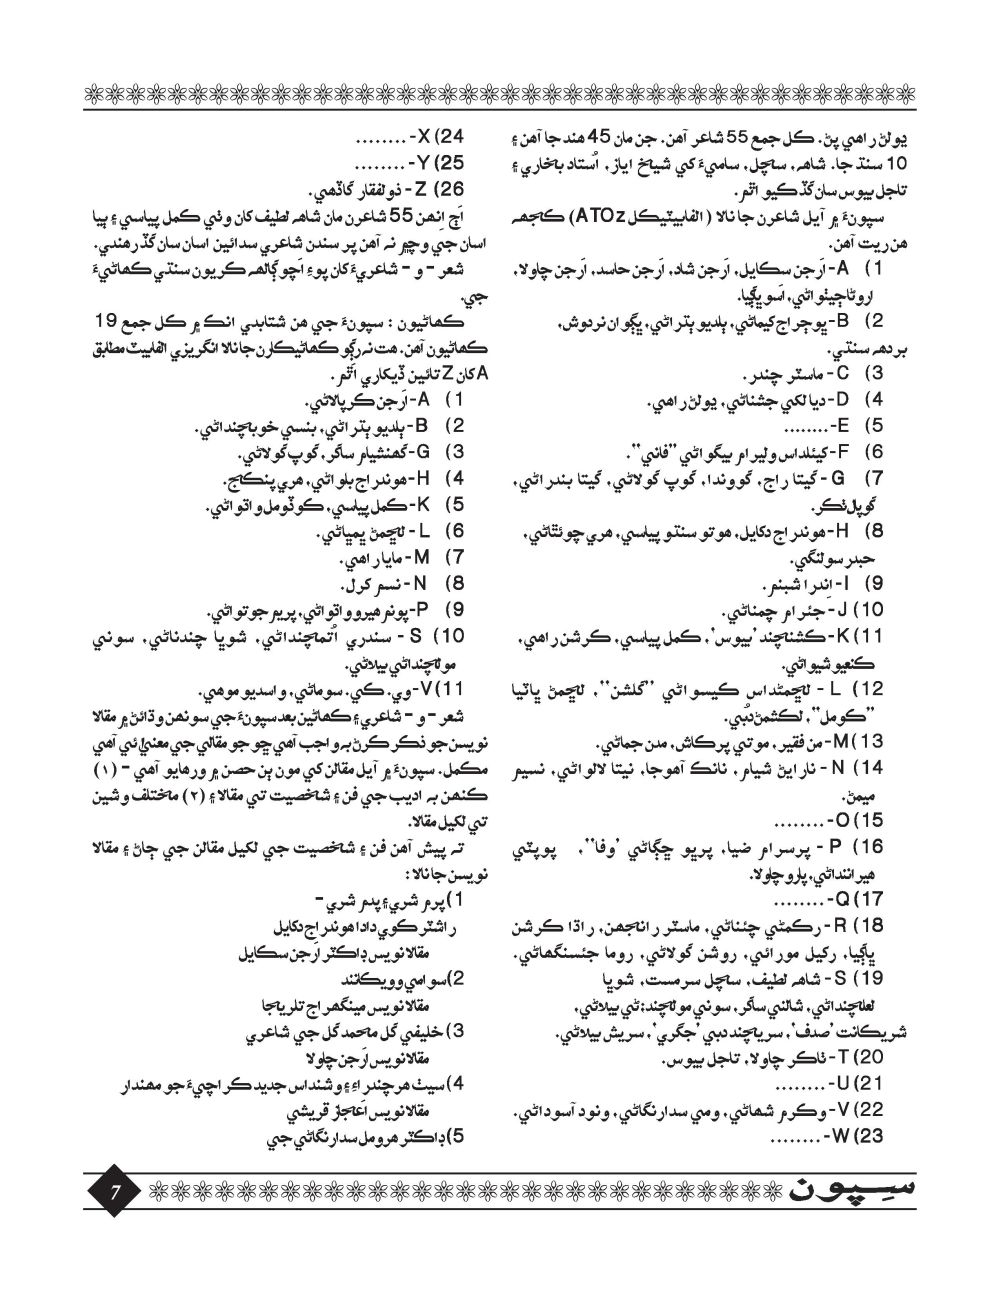 ڍولڻ راهي پڻ. ڪل جمع 55 شاعر آهن. جن مان 45 هند جا آهن ۽
10 سنڌ جا. شاهه، سچل، ساميءَ کي شيخ اياز، اُستاد بخاري ۽
تاجل بيوس سان گڏ ڪيو اٿم.
سپونءَ ۾ آيل شاعرن جا نالا (الفابيٽيڪل ATOz) ڪجهه
هن ريت آهن.
1) A- اَرجن سڪايل، اَرجن شاد، اَرجن حاسد، اَرجن چاولا،
2) B-
بردهه سنڌي.
3) C- ماسٽر چندر.
4) D- ديالکي جشناڻي، ڍولڻ راهي.
5) E- ........
6) F- کيئلداس وليرام بيگواڻي ”فاني“.
7) G- گيتا راج، گووندا، گوپ گولاڻي، گيتا بندراڻي،
گوپال ٺڪر.
8) H- هوندراج دکايل، هوتو سنڌو پياسي، هري چوئٿاڻي،
حيدر سولنگي.
9) I- اِندرا شبنم.
10) J- جئرام چمناڻي.
11) K- ڪشنچند ’بيوس‘، ڪمل پياسي، ڪرشن راهي،
ڪنعيو شيواڻي.
12) L- لڇمڻداس ڪيسواڻي ”گلشن“، لڇمڻ ڀاٽيا
”ڪومل“، لڪشمڻ دُٻي.
13) M- من فقير، موتي پرڪاش، مدن جماڻي.
14) N- نارايڻ شيام، نانڪ آهوجا، نيتا لالواڻي، نسيم
ميمڻ.
15) O- ........
16) P- پرسرام ضيا، پرڀو ڇڳاڻي ’وفا‘، پوپٽي
هيرانداڻي، پارو چاولا.
17) Q- ........
18) R- رکمڻي چئناڻي، ماسٽر رانجهن، راڌا ڪرشن
ڀاڳيا، رکيل مورائي، روشن گولاڻي، روما جئسنگهاڻي.
19) S- شاهه لطيف، سچل سرمست، شوڀا
لعلچنداڻي، شالني ساگر، سوني مولچنداڻي بيلاڻي،
شريڪانت ’صدف‘، سريچند دبي ’جگري‘، سريش بيلاڻي.
20) T- ٺاڪر چاولا، تاجل بيوس.
21) U- ........
22) V- وڪرم شهاڻي، ومي سدارنگاڻي، ونود آسوداڻي.
23) W- ........
24) X- ........
25) Y- ........
26) Z- ذولفقار گاڏهي.
اَڄ اِنهن 55 شاعرن مان شاهه لطيف کان وٺي ڪمل پياسي ۽ ٻيا
اسان جي وچ ۾ نه آهن پر سندن شاعري سدائين اسان سان گڏ رهندي.
شعر - و - شاعريءَ کان پوءِ اَچو ڳالهه ڪريون سنڌي ڪهاڻيءَ
جي.
ڪهاڻيون : سپونءَ جي هن شتابدي انڪ ۾ ڪل جمع 19
ڪهاڻيون آهن. هت نه رڳو ڪهاڻيڪارن جا نالا انگريزي الفابيٽ مطابق
A کان Z تائين ڏيکاري اَٿم.
1) A- اَرجن ڪرپالاڻي.
2) B- ٻلديو ٻتراڻي، بنسي خوبچنداڻي.
3) G- گهنشيام ساگر، گوپ گولاڻي.
4) H- هوندراج بلواڻي، هري پنڪج.
5) K- ڪمل پياسي، ڪوڏومل واٽواڻي.
6) L- لڇمڻ ڀمڀاڻي.
7) M- مايا راهي.
8) N- نسم کرل.
9) P- پونم هيرو واٽواڻي، پريم جوتواڻي.
10) S- سندري اُتمچنداڻي، شوڀا چندناڻي، سوني
مولچنداڻي بيلاڻي.
11) V- وي. ڪي. سوماڻي، واسديو موهي.
شعر - و - شاعري ۽ ڪهاڻين بعد سپونءَ جي سونهن وڌائڻ ۾ مقالا
نويسن جو ذڪر ڪرڻ به واجب آهي ڇو جو مقالي جي معنيٰ ئي آهي
مڪمل. سپونءَ ۾ آيل مقالن کي مون ٻن حصن ۾ ورهايو آهي - (۱)
ڪنهن به اديب جي فن ۽ شخصيت تي مقالا ۽ (۲) مختلف وشين
تي لکيل مقالا.
ته پيش آهن فن ۽ شخصيت جي لکيل مقالن جي ڄاڻ ۽ مقالا
نويسن جا نالا :
1) پرم شري ۽ پدم شري-
راشٽر ڪوي دادا هوندراج دکايل
مقالا نويس ڊاڪٽر اَرجن سڪايل
2) سوامي وويڪانند
مقالا نويس مينگهراج تلريجا
3) خليفي گل محمد گل جي شاعري
مقالا نويس اَرجن چاولا
4) سيٺ هرچندراءِ وشنداس جديد ڪراچيءَ جو مهندار
مقالا نويس اَعجاز قريشي
5) ڊاڪٽر هرومل سدارنگاڻي جي
7
سِپون